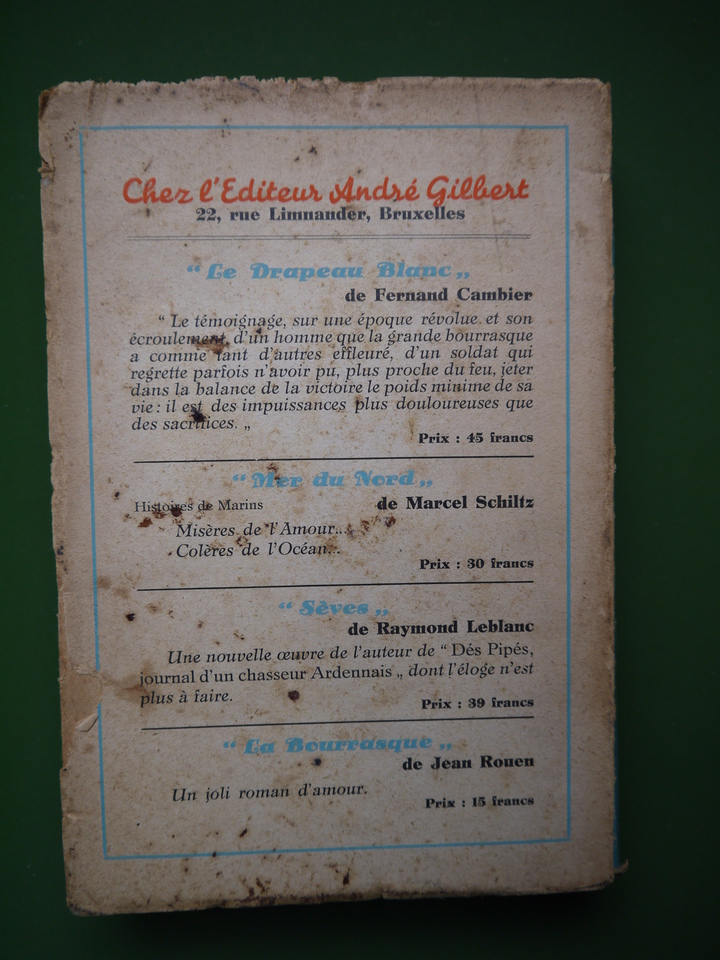 Chez l'Editeur André Gilbert
22, rue Limnander, Bruxelles
“ Le Drapeau Blanc „
de Fernand Cambier
“ Le témoignage, sur une époque révolue et son
écroulement, d'un homme que la grande bourrasque
a comme tant d'autres effleuré, d'un soldat qui
regrette parfois n'avoir pu, plus proche du feu, jeter
dans la balance de la victoire le poids minime de sa
vie : il est des impuissances plus douloureuses que
des sacrifices. „
Prix : 45 francs
“ Mer du Nord „
Histoires de Marins de Marcel Schiltz
Misères de l'Amour...
Colères de l'Océan...
Prix : 30 francs
“ Sèves „
de Raymond Leblanc
Une nouvelle œuvre de l'auteur de “ Dés Pipés,
journal d'un chasseur Ardennais „ dont l'éloge n'est
plus à faire.
Prix : 39 francs
“ La Bourrasque „
de Jean Rouen
Un joli roman d'amour.
Prix : 15 francs